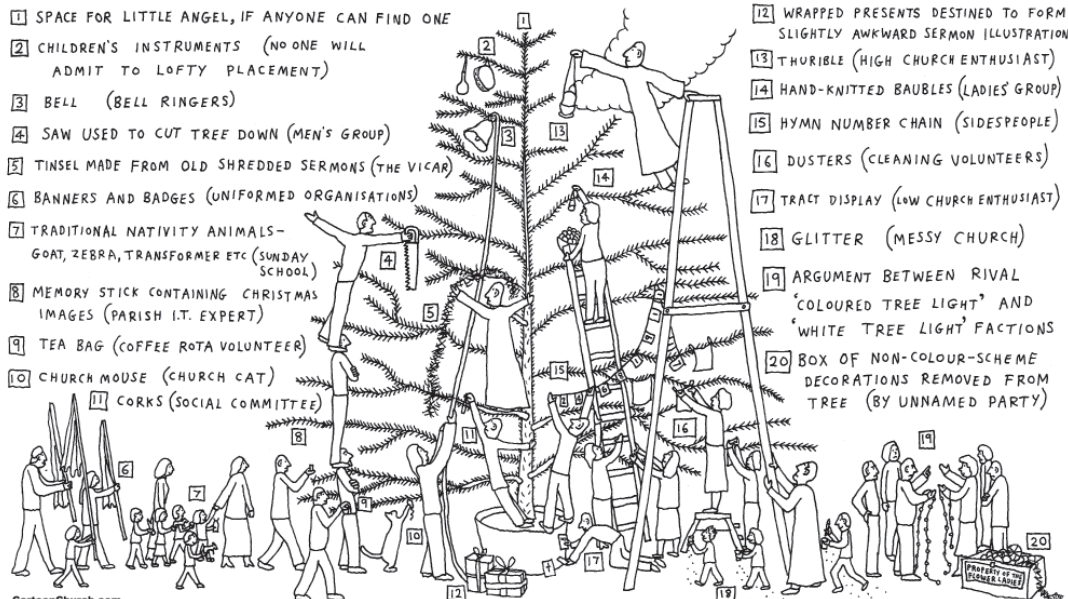 1 SPACE FOR LITTLE ANGEL, IF ANYONE CAN FIND ONE
2 CHILDREN'S INSTRUMENTS (NO ONE WILL
ADMIT TO LOFTY PLACEMENT)
3 BELL (BELL RINGERS)
4 SAW USED TO CUT TREE DOWN (MEN'S GROUP)
5 TINSEL MADE FROM OLD SHREDDED SERMONS (THE VICAR)
6 BANNERS AND BADGES (UNIFORMED ORGANISATIONS)
7 TRADITIONAL NATIVITY ANIMALS-
GOAT, ZEBRA, TRANSFORMER ETC (SUNDAY
SCHOOL)
8 MEMORY STICK CONTAINING CHRISTMAS
IMAGES (PARISH I.T. EXPERT)
9 TEA BAG (COFFEE ROTA VOLUNTEER)
10 CHURCH MOUSE (CHURCH CAT)
11 CORKS (SOCIAL COMMITTEE)
12 WRAPPED PRESENTS DESTINED TO FORM
SLIGHTLY AWKWARD SERMON ILLUSTRATION
13 THURIBLE (HIGH CHURCH ENTHUSIAST)
14 HAND-KNITTED BAUBLES (LADIES' GROUP)
15 HYMN NUMBER CHAIN (SIDESPEOPLE)
16 DUSTERS (CLEANING VOLUNTEERS)
17 TRACT DISPLAY (LOW CHURCH ENTHUSIAST)
18 GLITTER (MESSY CHURCH)
19 ARGUMENT BETWEEN RIVAL
'COLOURED TREE LIGHT' AND
'WHITE TREE LIGHT' FACTIONS
20 BOX OF NON-COLOUR-SCHEME
DECORATIONS REMOVED FROM
TREE (BY UNNAMED PARTY)
1
2
3
13
14
4
5
15
16
8
11
6
7
9
10
17
12
18
19
20
PROPERTY OF THE
FLOWER LADIES
CartoonChurch.com